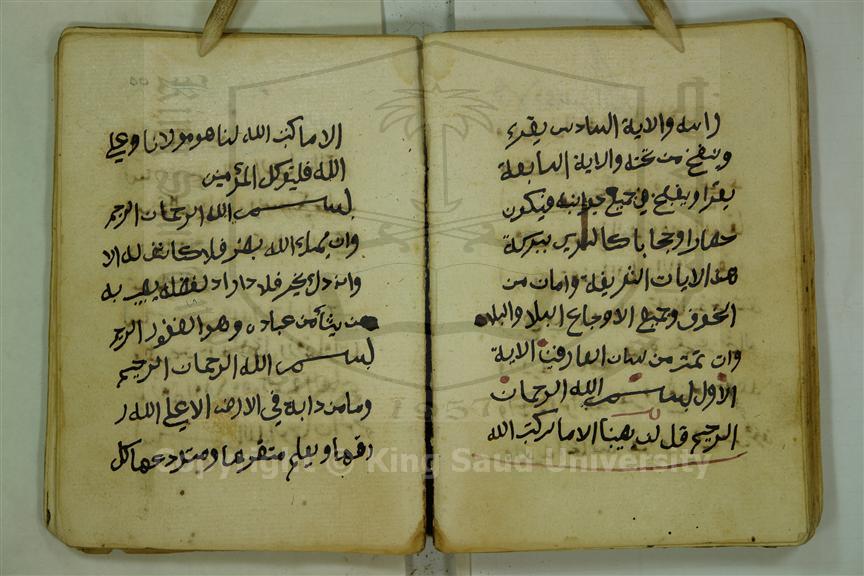 راسه والاية السادس يقرء
وينفخ من تحته والاية السابعة
يقرا وينفخ في جميع جوانبه فيكون
حصارا وحجابا كالترس ببركة
هذا الايات الشريفة وامان من
الخوف وجميع الاوجاع البلا والبلا
وان تمت من لسان العارفين الاية
الاول بسم الله الرحمان
الرحيم قل لن يصيبنا الا ما كتب الله
الا ما كتب الله لنا هو مولانا وعلى
الله فليتوكل المؤمنين
بسم الله الرحمان الرحيم
وان يمسك الله بضر فلا كاشف له الا
وان يردك بخير فلا راد لفضله يصيب به
من يشأ من عباده وهو الغفور الرحيم
بسم الله الرحمان الرحيم
وما من دابة في الارض الا على الله ر
زقها ويعلم مستقرها ومستودعها كل
Copyright © King Saud University
1957